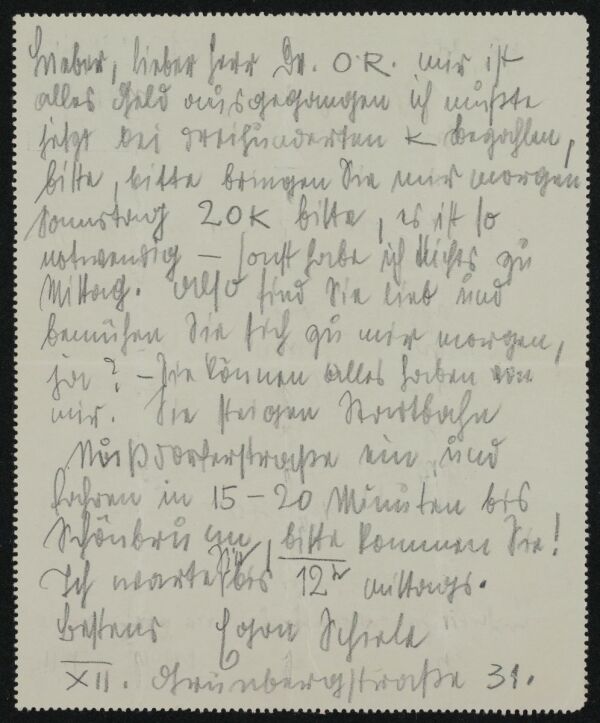 Lieber, lieber Herr Dr. O.R. mir ist
alles Geld ausgegangen ich mußte
jetzt bei dreihunderten K bezahlen,
bitte, bitte bringen Sie mir morgen
Sonntag 20K bitte, es ist so
notwendig – sonst habe ich Nichts zu
Mittag. Also sind Sie lieb und
bemühen Sie sich zu mir morgen,
ja? – Sie können alles haben von
mir. Sie steigen Stadtbahn
Nußdorferstraße ein und
fahren in 15 – 20 Minuten bis
Schönbrunn, bitte kommen Sie!
Ich warte bis 12h mittags.
Bestens Egon Schiele
XII. Grünbergstraße 31.